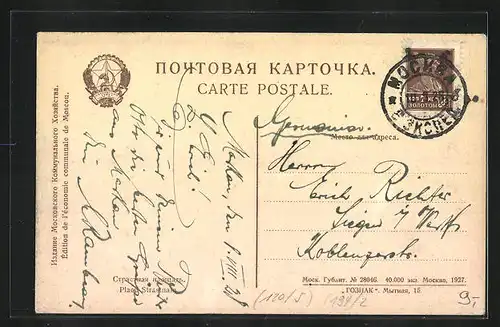 ПОЧТОВАЯ КАРТОЧКА.
CARTE POSTALE.
Издание Московского Коммунального Хозяйства.
Édition de l'économie communale de Moscou.
МОСКВА
ЭКСПЕД
Germania.
Место для адреса.
Herrn
Erich Richter
Siegen / Westf
Koblenzerstr.
Moskau, den VIII 28
L. Erich!
Dir und Deinen
die besten Grüsse
aus Moskau
Страстная площадь.
Place Strastnaia.
Моск. Гублит. № 28046. 40.000 экз. Москва, 1927.
"ГОЗНАК". Мытная, 15
(120/5) 194/2
9,-